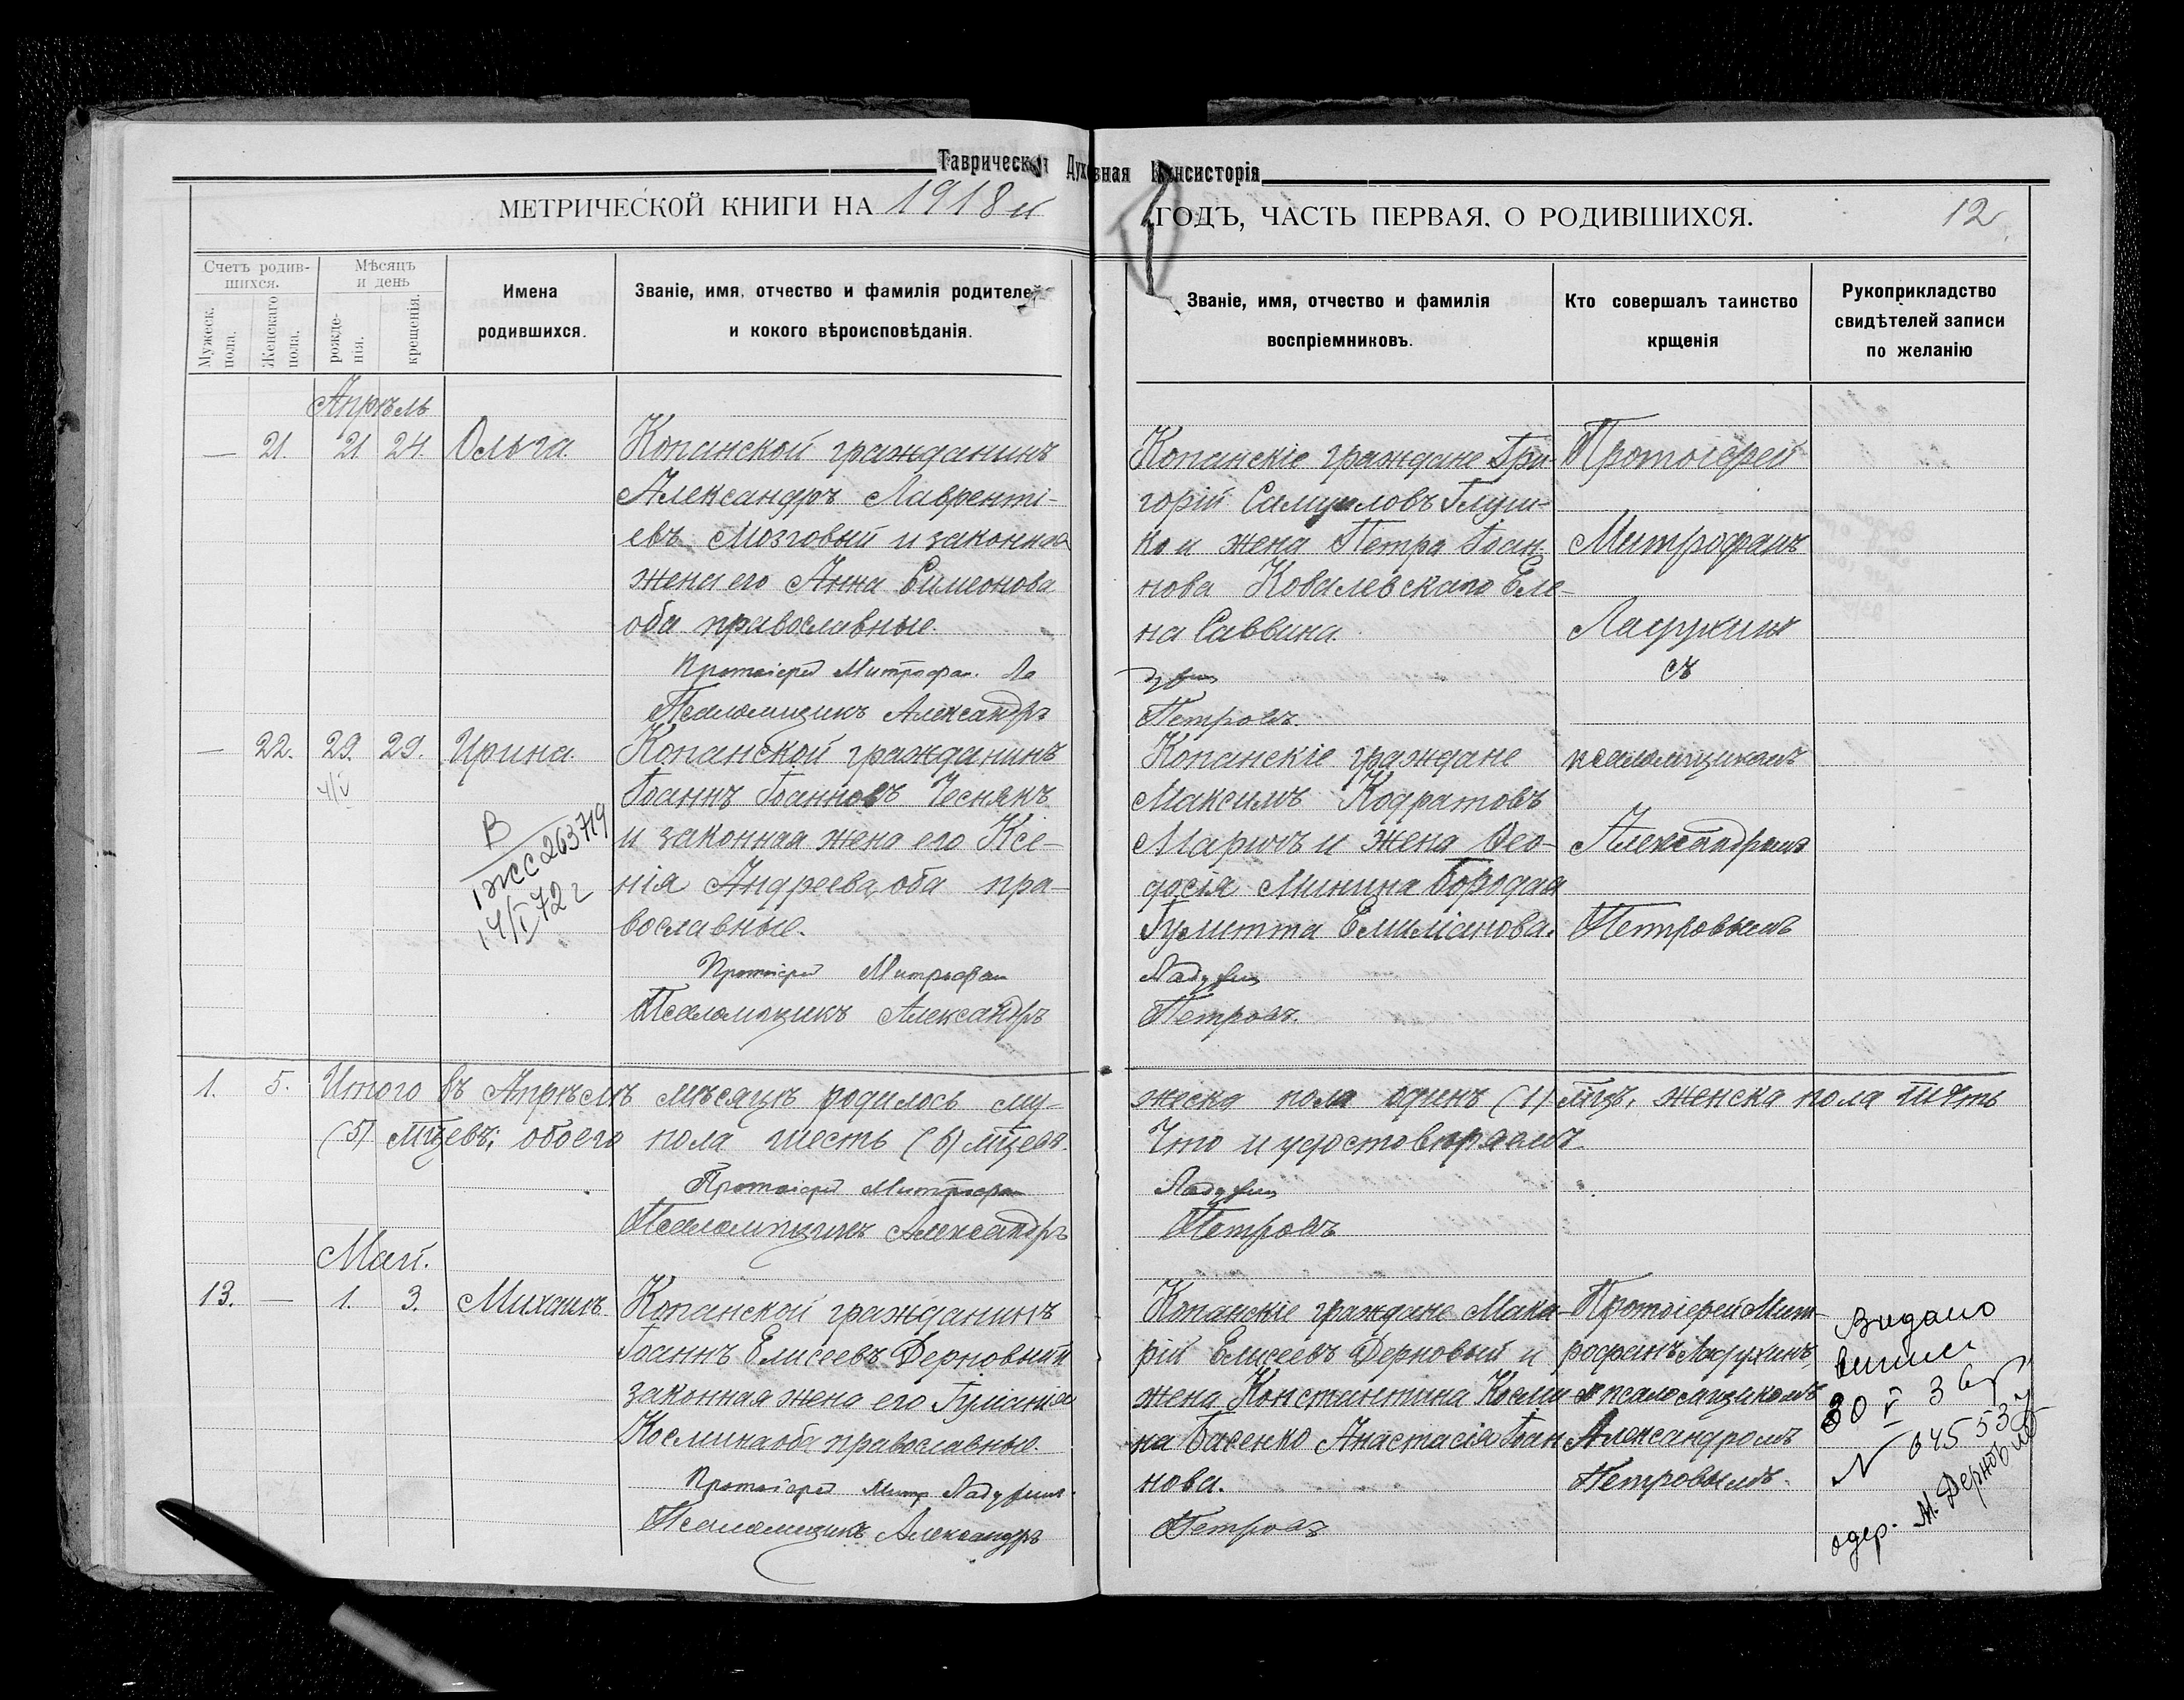 Таврическая Духовная Консисторія
МЕТРИЧЕСКОЙ КНИГИ НА 1918 й ГОДЪ, ЧАСТЬ ПЕРВАЯ, О РОДИВШИХСЯ. 12
Счетъ родив-
шихся.
Мужеск.
пола.
Женскаго
пола.
Мѣсяцъ
и день
рожде-
нія.
крещенія.
Имена
родившихся.
Званіе, имя, отчество и фамилія родителей
и кокого вѣроисповѣданія.
Званіе, имя, отчество и фамилія
воспріемниковъ.
Кто совершалъ таинство
крщенія
Рукоприкладство
свидѣтелей записи
по желанію
Апрѣль
— 21. 21. 24. Ольга.
Копанской гражданинъ
Александръ Лавренті-
евъ Мозговый и законная
жена его Анна Симеонова
оба православные.
Протоіерей Митрофан. Ла
Псаломщикъ Александръ
Копанскіе граждане Гри-
горій Самуиловъ Глуш-
ко и жена Петра Іоан-
нова Ковалевскаго Еле-
на Саввина.
Петровъ.
Протоіерей
Митрофанъ
Ладухинъ
съ
— 22. 29. 29. Ирина.
Копанской гражданинъ
Іоаннъ Іоанновъ Чеснякъ
и законная жена его Ксе-
нія Андреева, оба пра-
вославные.
Протоіерей Митрофан
Псаломщикъ Александръ
В
1 ЖС С 263719
14/I 72 г
Копанскіе граждане
Максимъ Кодратовъ
и жена Ѳео-
досія Минина Бородая
Іулитта Емиліанова.
Ладухин
Петровъ.
псаломщикомъ
Александромъ
Петровымъ
1. 5. Итого въ Апрѣлѣ мѣсяцѣ родилось му-
жеска пола одинъ (1) мцъ, женска пола пять
(5) мцевъ; обоего пола шесть (6) мцевъ.
Что и удостовѣряемъ.
Протоіерей Митрофан Ладухин
Псаломщикъ Александръ Петровъ
Май.
13. — 1. 3. Михаилъ.
Копанской гражданинъ
Іоаннъ Елисеевъ Дерновый и
законная жена его Іуліанія
Космина оба православные.
Протоіерей Митр. Ладухинъ.
Псаломщикъ Александръ
Копанскіе граждане Мака-
рій Елисеевъ Дерновый и
жена Константина Косми-
на Басенко Анастасія Іоан-
нова.
Петровъ
Протоіерей Мит-
рофанъ Ладухинъ
съ псаломщикомъ
Александромъ
Петровымъ.
Видано
виписи
N 045 537
одер. М. Дерновый